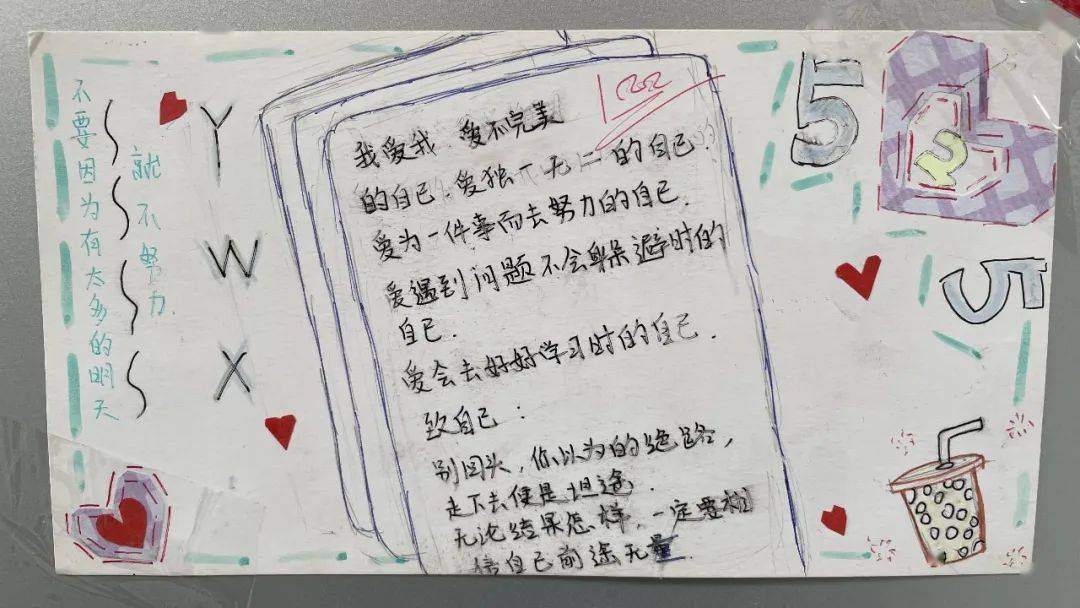 不要因为有太多的明天
就不努力.
Y
W
X
我爱我.爱不完美
的自己.爱独一无二的自己.
爱为一件事而去努力的自己.
爱遇到问题不会躲避时的
自己.
爱会去好好学习时的自己.
致自己:
别回头,你以为的绝路,
走下去便是坦途.
无论结果怎样,一定要相
信自己前途无量.
5
2
5